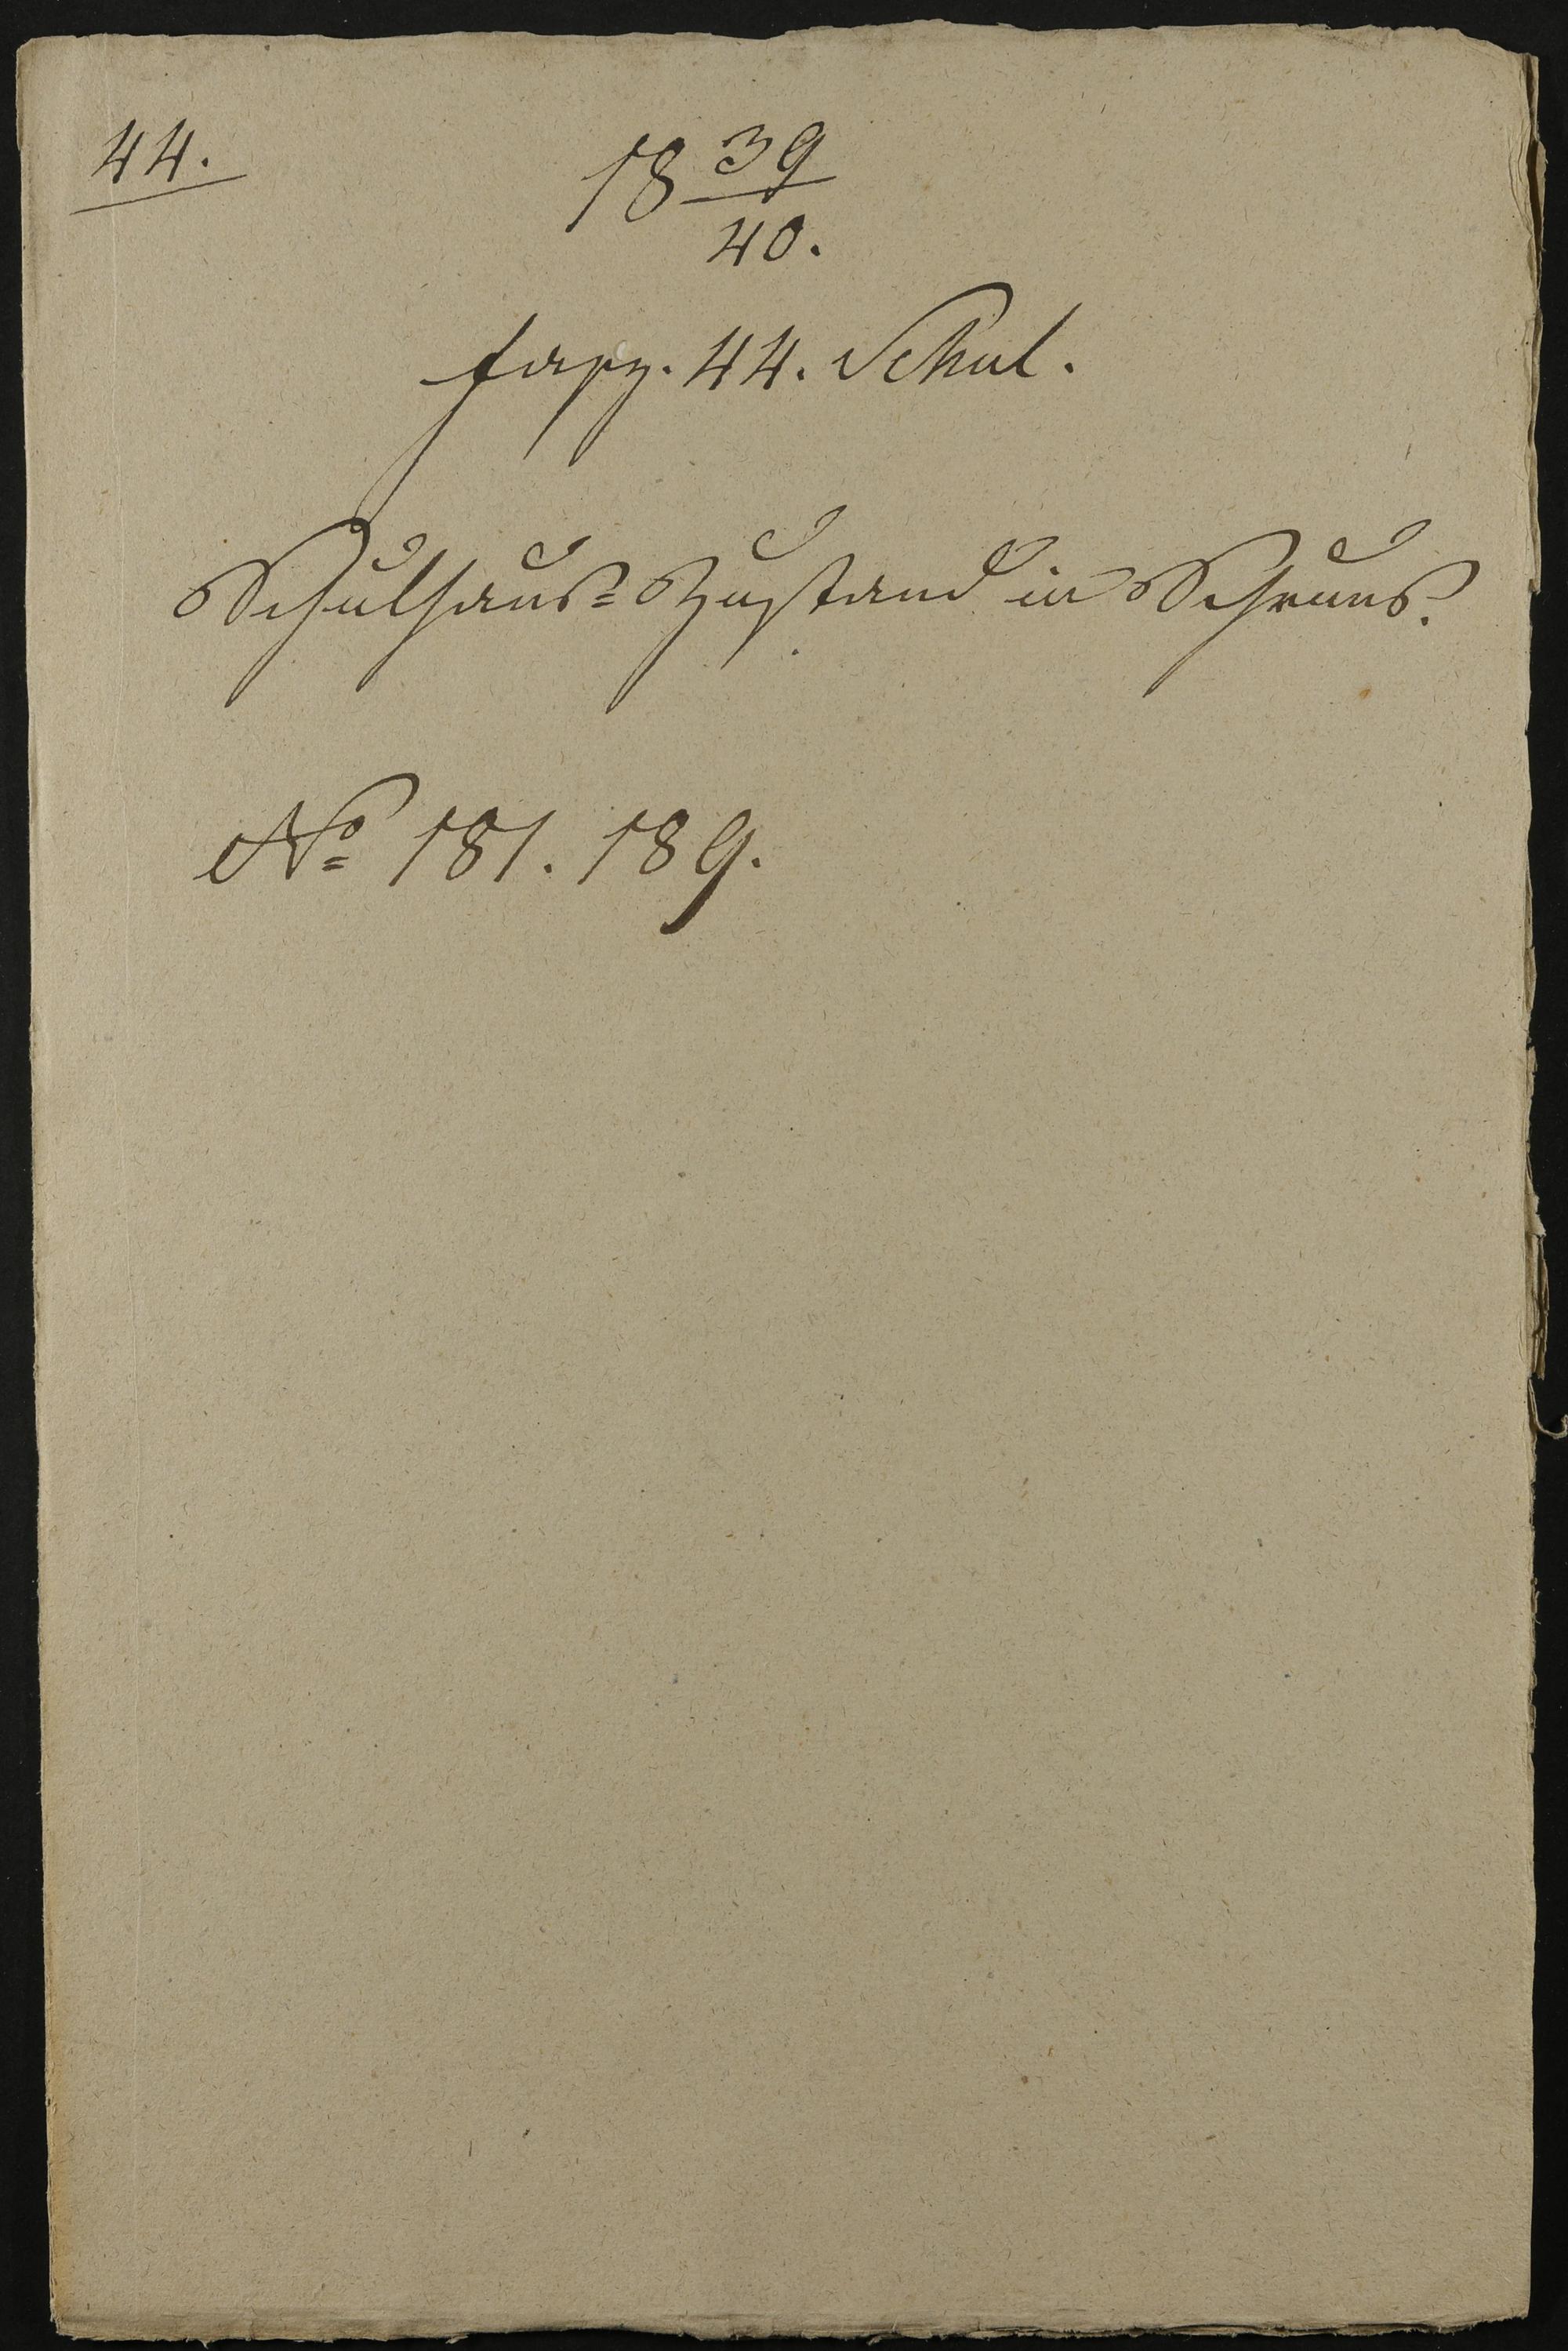 44.
18 39/40.
fasz. 44. Schul.
Schulhaus= Zustand in Schruns.
No 181. 189.